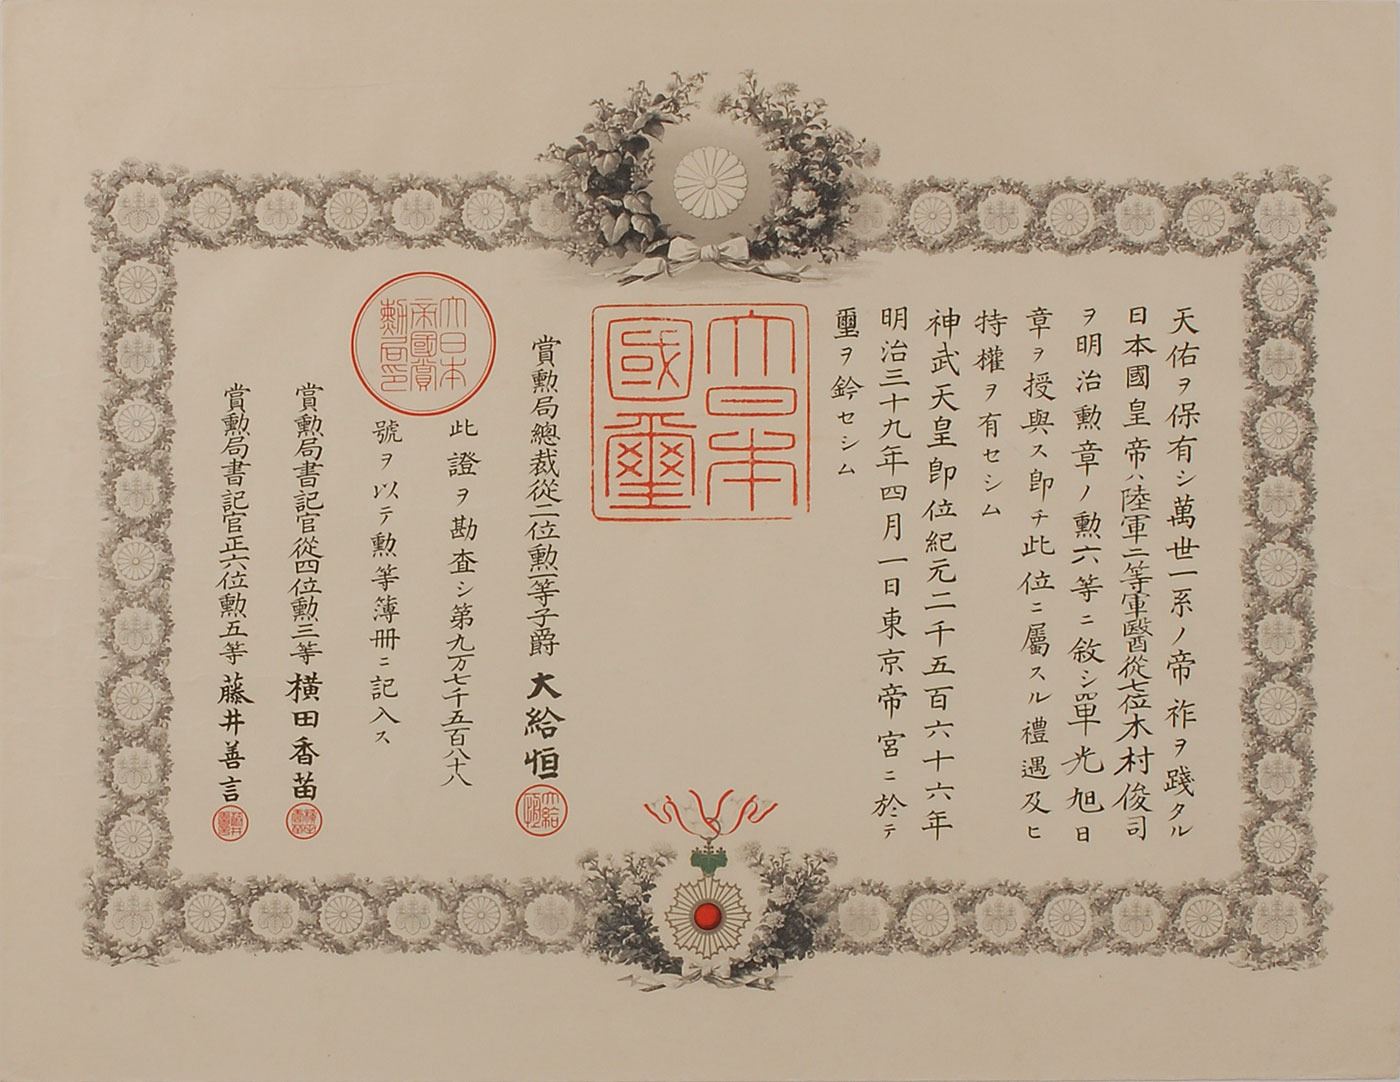 天佑ヲ保有シ萬世一系ノ帝祚ヲ踐タル
日本國皇帝ハ陸軍二等軍醫從七位木村俊司
ヲ明治勲章ノ勲六等ニ敘シ單光旭日
章ヲ授與ス即チ此位ニ屬スル禮遇及ヒ
特權ヲ有セシム
神武天皇即位紀元二千五百六十六年
明治三十九年四月一日東京帝宮ニ於テ
璽ヲ鈐セシム
大日本
國璽
賞勲局總裁從二位勲一等子爵 大給恒
此證ヲ勘査シ第九万七千五百八十八
號ヲ以テ勲等簿冊ニ記入ス
大日本
帝國賞
勲局印
賞勲局書記官從四位勲三等 橫田香苗
賞勲局書記官正六位勲五等 藤井善言